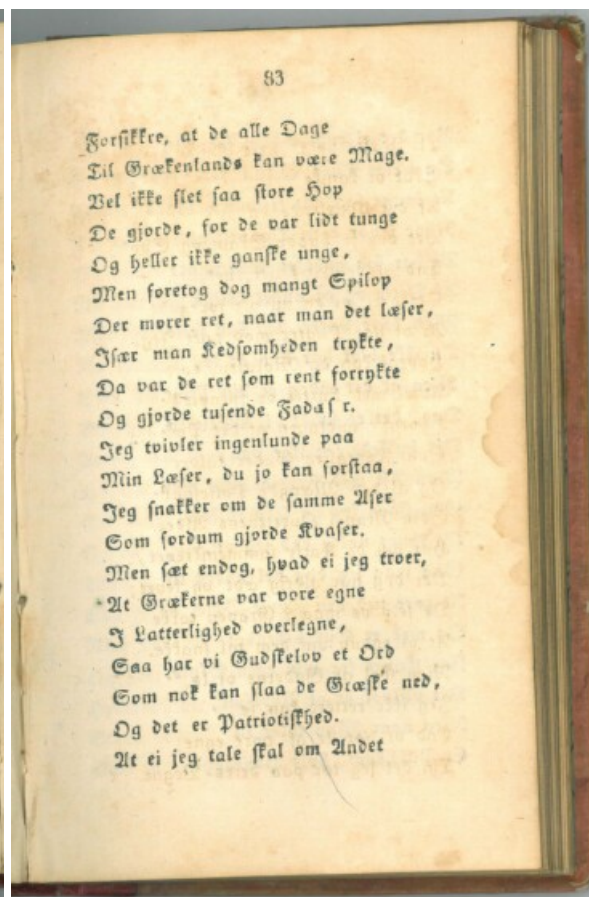 83
Forsikkre, at de alle Dage
Til Grækenlands kan være Mage.
Vel ikke slet saa store Hop
De gjorde, for de var lidt tunge
Og heller ikke ganske unge,
Men foretog dog mangt Spilop
Der morer ret, naar man det læser,
Især man Kedsomheden trykte,
Da var de ret som rent forrykte
Og gjorde tusende Fadas r.
Jeg tvivler ingenlunde paa
Min Læser, du jo kan forstaa,
Jeg snakker om de samme Aser
Som fordum gjorde Kvaser.
Men sæt endog, hvad ei jeg troer,
At Grækerne var vore egne
I Latterlighed overlegne,
Saa har vi Gudskelov et Ord
Som nok kan slaa de Græske ned,
Og det er Patriotiskhed.
At ei jeg tale skal om Andet